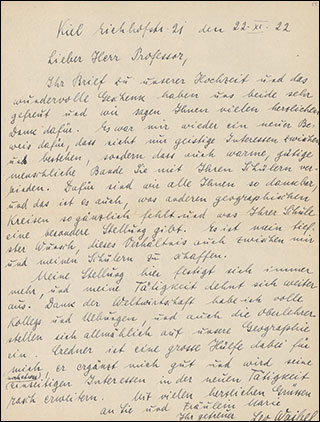 Kiel Eichhofstr. 21 den 22.XI.22
Lieber Herr Professor,
Ihr Brief zu unserer Hochzeit und das
wundervolle Geschenk haben uns beide sehr
gefreut und wir sagen Ihnen vielen herzlichen
Dank dafür. Es war mir wieder ein neuer Be-
weis dafür, dass nicht nur geistige Interessen zwischen
uns bestehen, sondern dass auch warme, gütige
menschliche Bande Sie mit Ihren Schülern ver-
binden. Dafür sind wir alle Ihnen so dankbar,
und das ist es auch, was anderen geographischen
Kreisen so gänzlich fehlt und was Ihrer Schule
eine besondere Stellung gibt. Es ist mein tief-
ster Wunsch, dieses Verhältnis auch zwischen mir
und meinen Schülern zu schaffen.
Meine Stellung hier festigt sich immer
mehr, und meine Tätigkeit dehnt sich weiter
aus. Dank der Weltwirtschaft habe ich volle
Kollegs und Uebungen, und auch die Oberlehrer
stellen sich allmählich auf unsere Geographie
ein. Credner ist eine grosse Hülfe dabei für
mich, er ergänzt mich gut und wird seine
einseitigen Interessen in der neuen Tätigkeit
rasch erweitern. Mit vielen herzlichen Grüssen
an Sie und Fräulein Marie
Ihr getreuer Leo Waibel